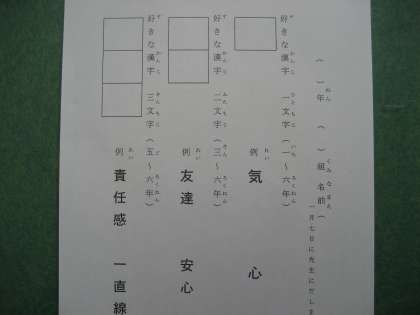 (　)年　(　)組　名前(
一月七日に先生にだしま
好きな漢字　一文字(一～六年)
例　気　心
好きな漢字　二文字(三～六年)
例　友達　安心
好きな漢字　三文字(五～六年)
例　責任感　一直線